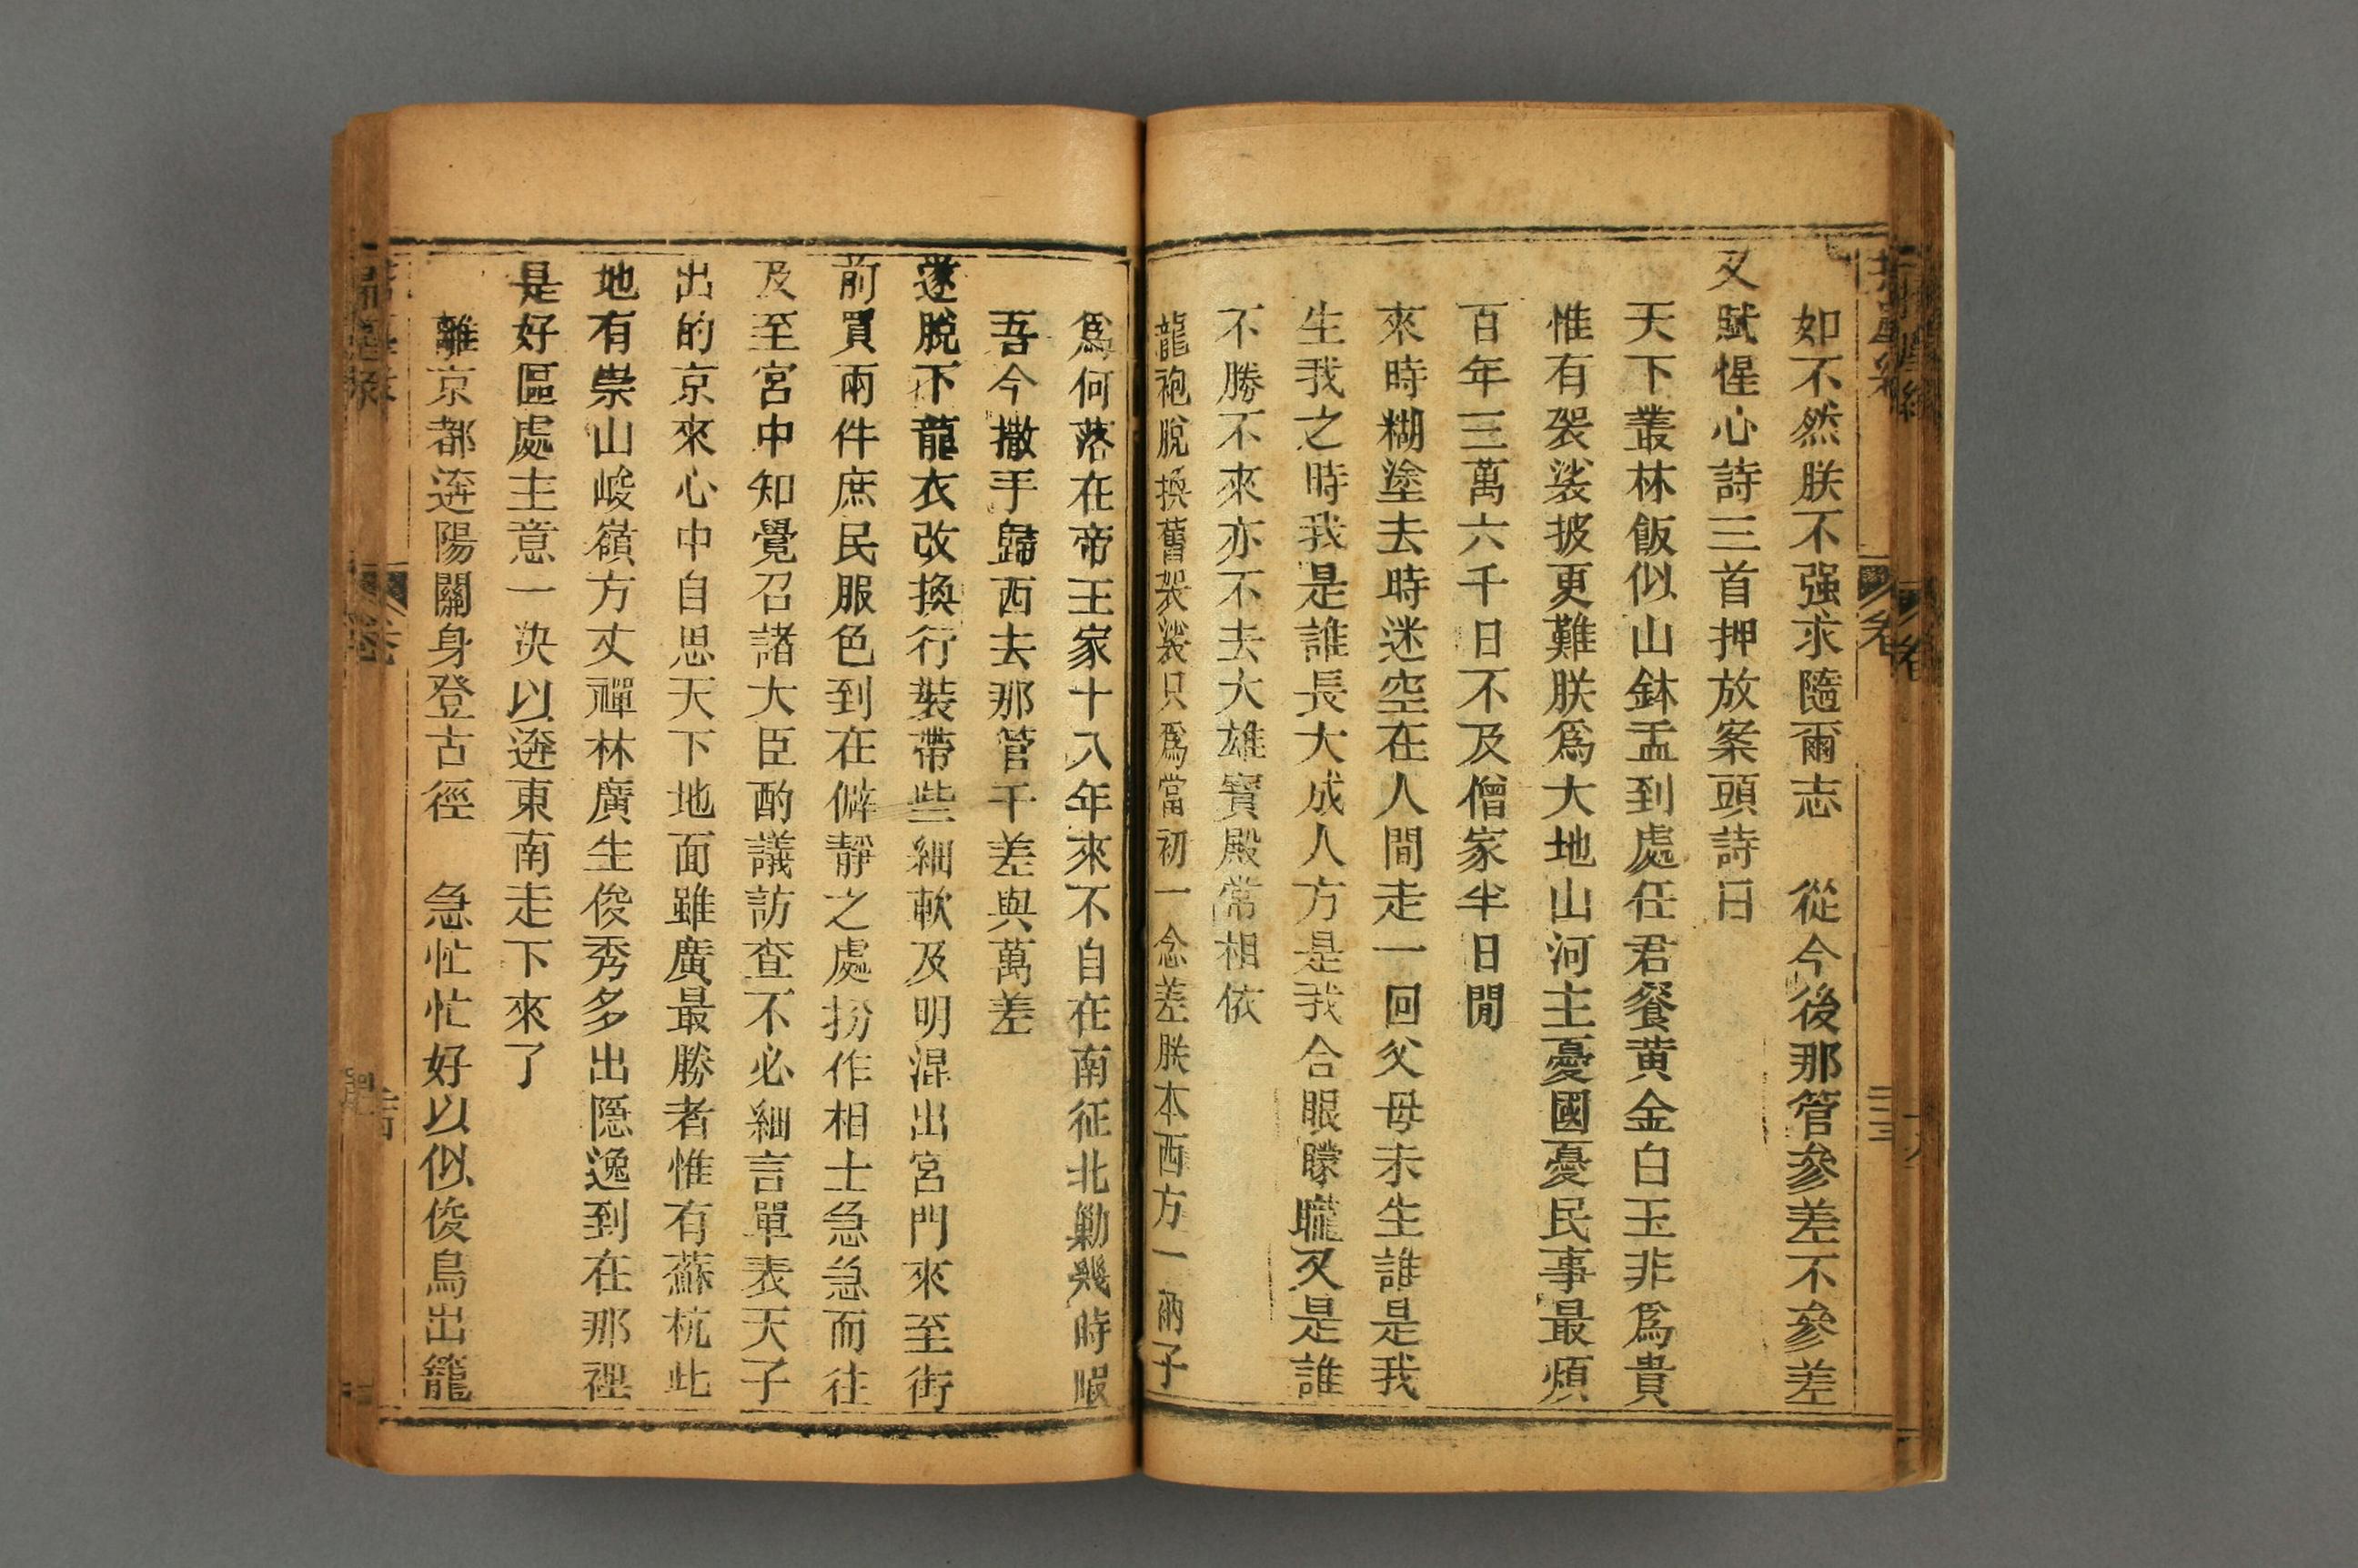 如不然朕不强求隨爾志　從今後那管參差不參差
又賦惺心詩三首押放案頭詩曰
天下叢林飯似山鉢盂到處任君餐黃金白玉非爲貴
惟有袈裟披更難朕爲大地山河主憂國憂民事最煩
百年三萬六千日不及僧家半日閒
來時糊塗去時迷空在人間走一回父母未生誰是我
生我之時我是誰長大成人方是我合眼矇矓又是誰
不勝不來亦不去大雄寶殿常相依
龍袍脫換舊袈裟只爲當初一念差朕本西方一衲子
爲何落在帝王家十八年來不自在南征北勦幾時暇
吾今撒手歸西去那管千差與萬差
遂脫下龍衣改換行裝帶些細軟及明混出宮門來至街
前買兩件庶民服色到在僻靜之處扮作相士急急而往
及至宮中知覺召諸大臣酌議訪查不必細言單表天子
出的京來心中自思天下地面雖廣最勝者惟有蘇杭此
地有崇山峻嶺方丈禪林廣生俊秀多出隱逸到在那裡
是好區處主意一決以迯東南走下來了
離京都迯陽關身登古徑　急忙忙好以似俊鳥出籠